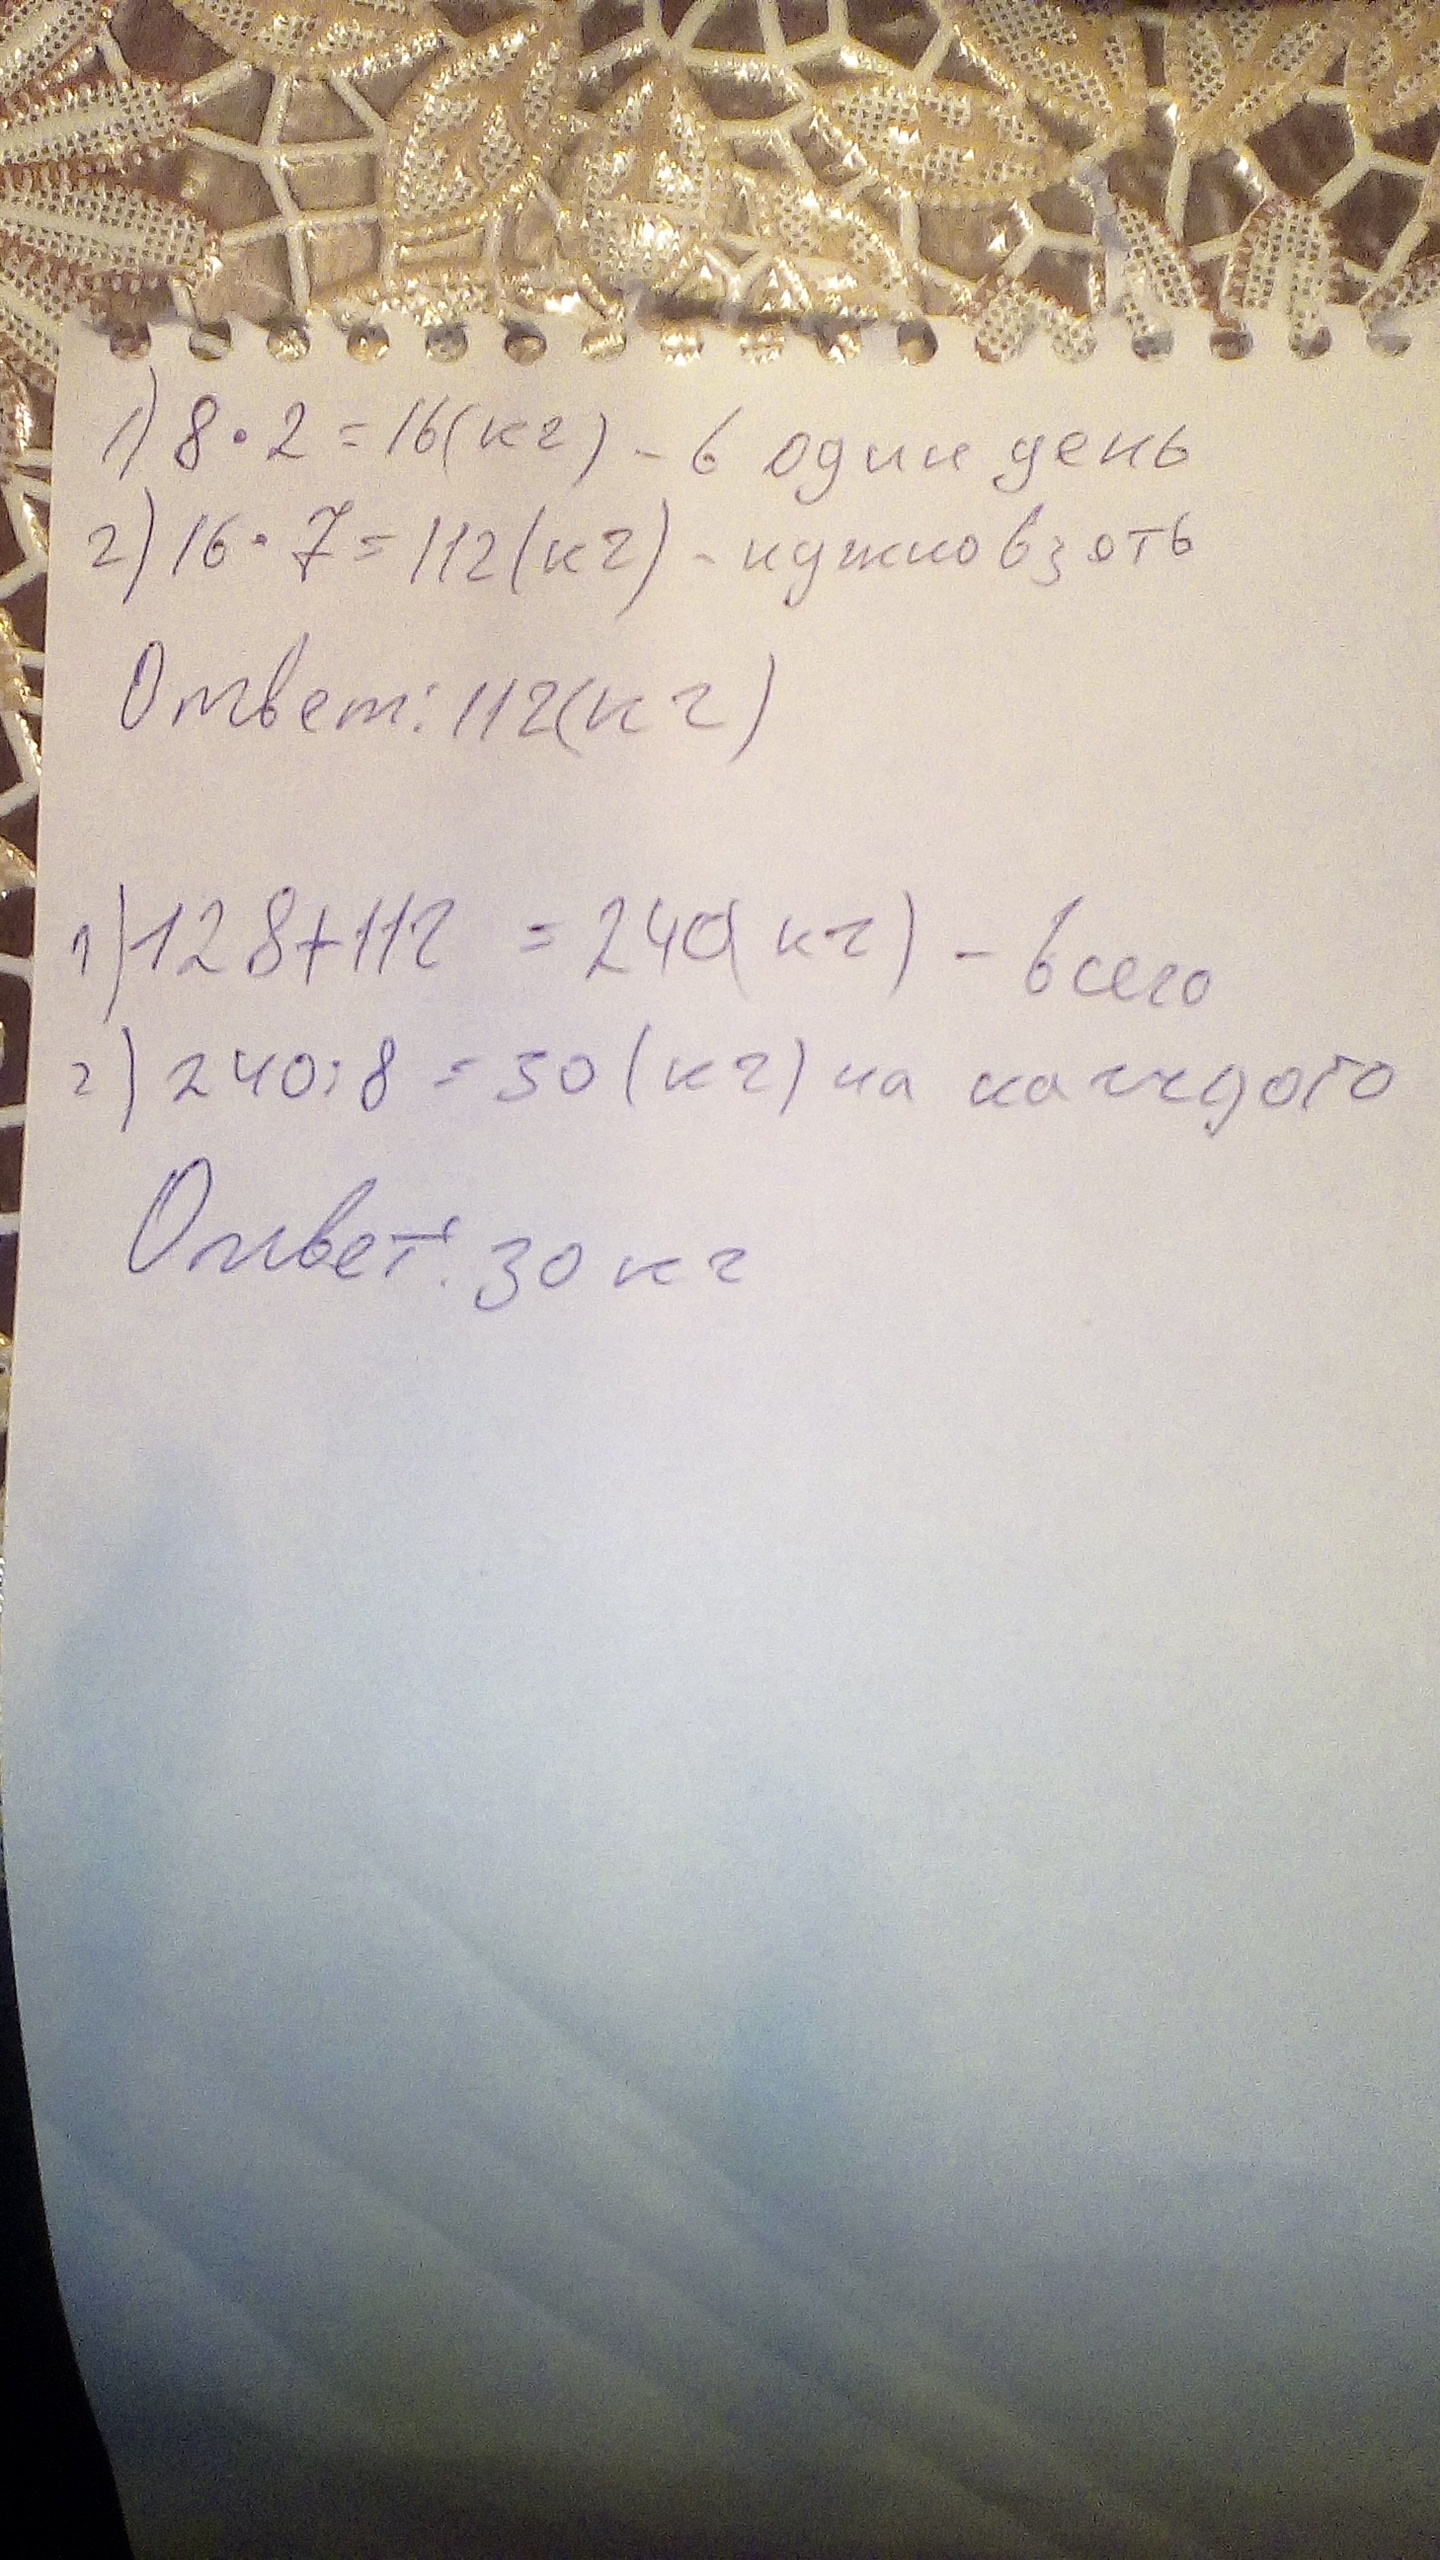 1) 8 · 2 = 16(кг) - в один день
2) 16 · 7 = 112(кг) - нужно взять
Ответ: 112(кг)
1) 128+112 = 240(кг) - всего
2) 240:8 = 30(кг) на каждого
Ответ: 30 кг